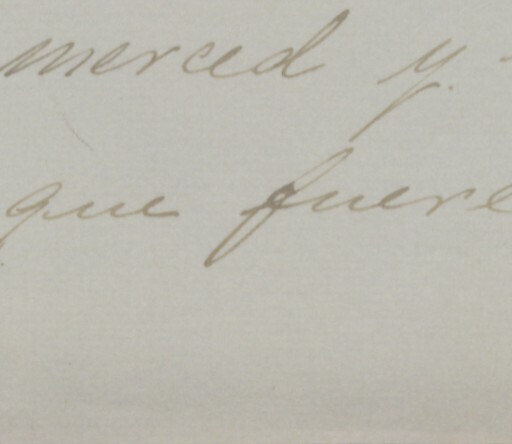 merced y
que fuere